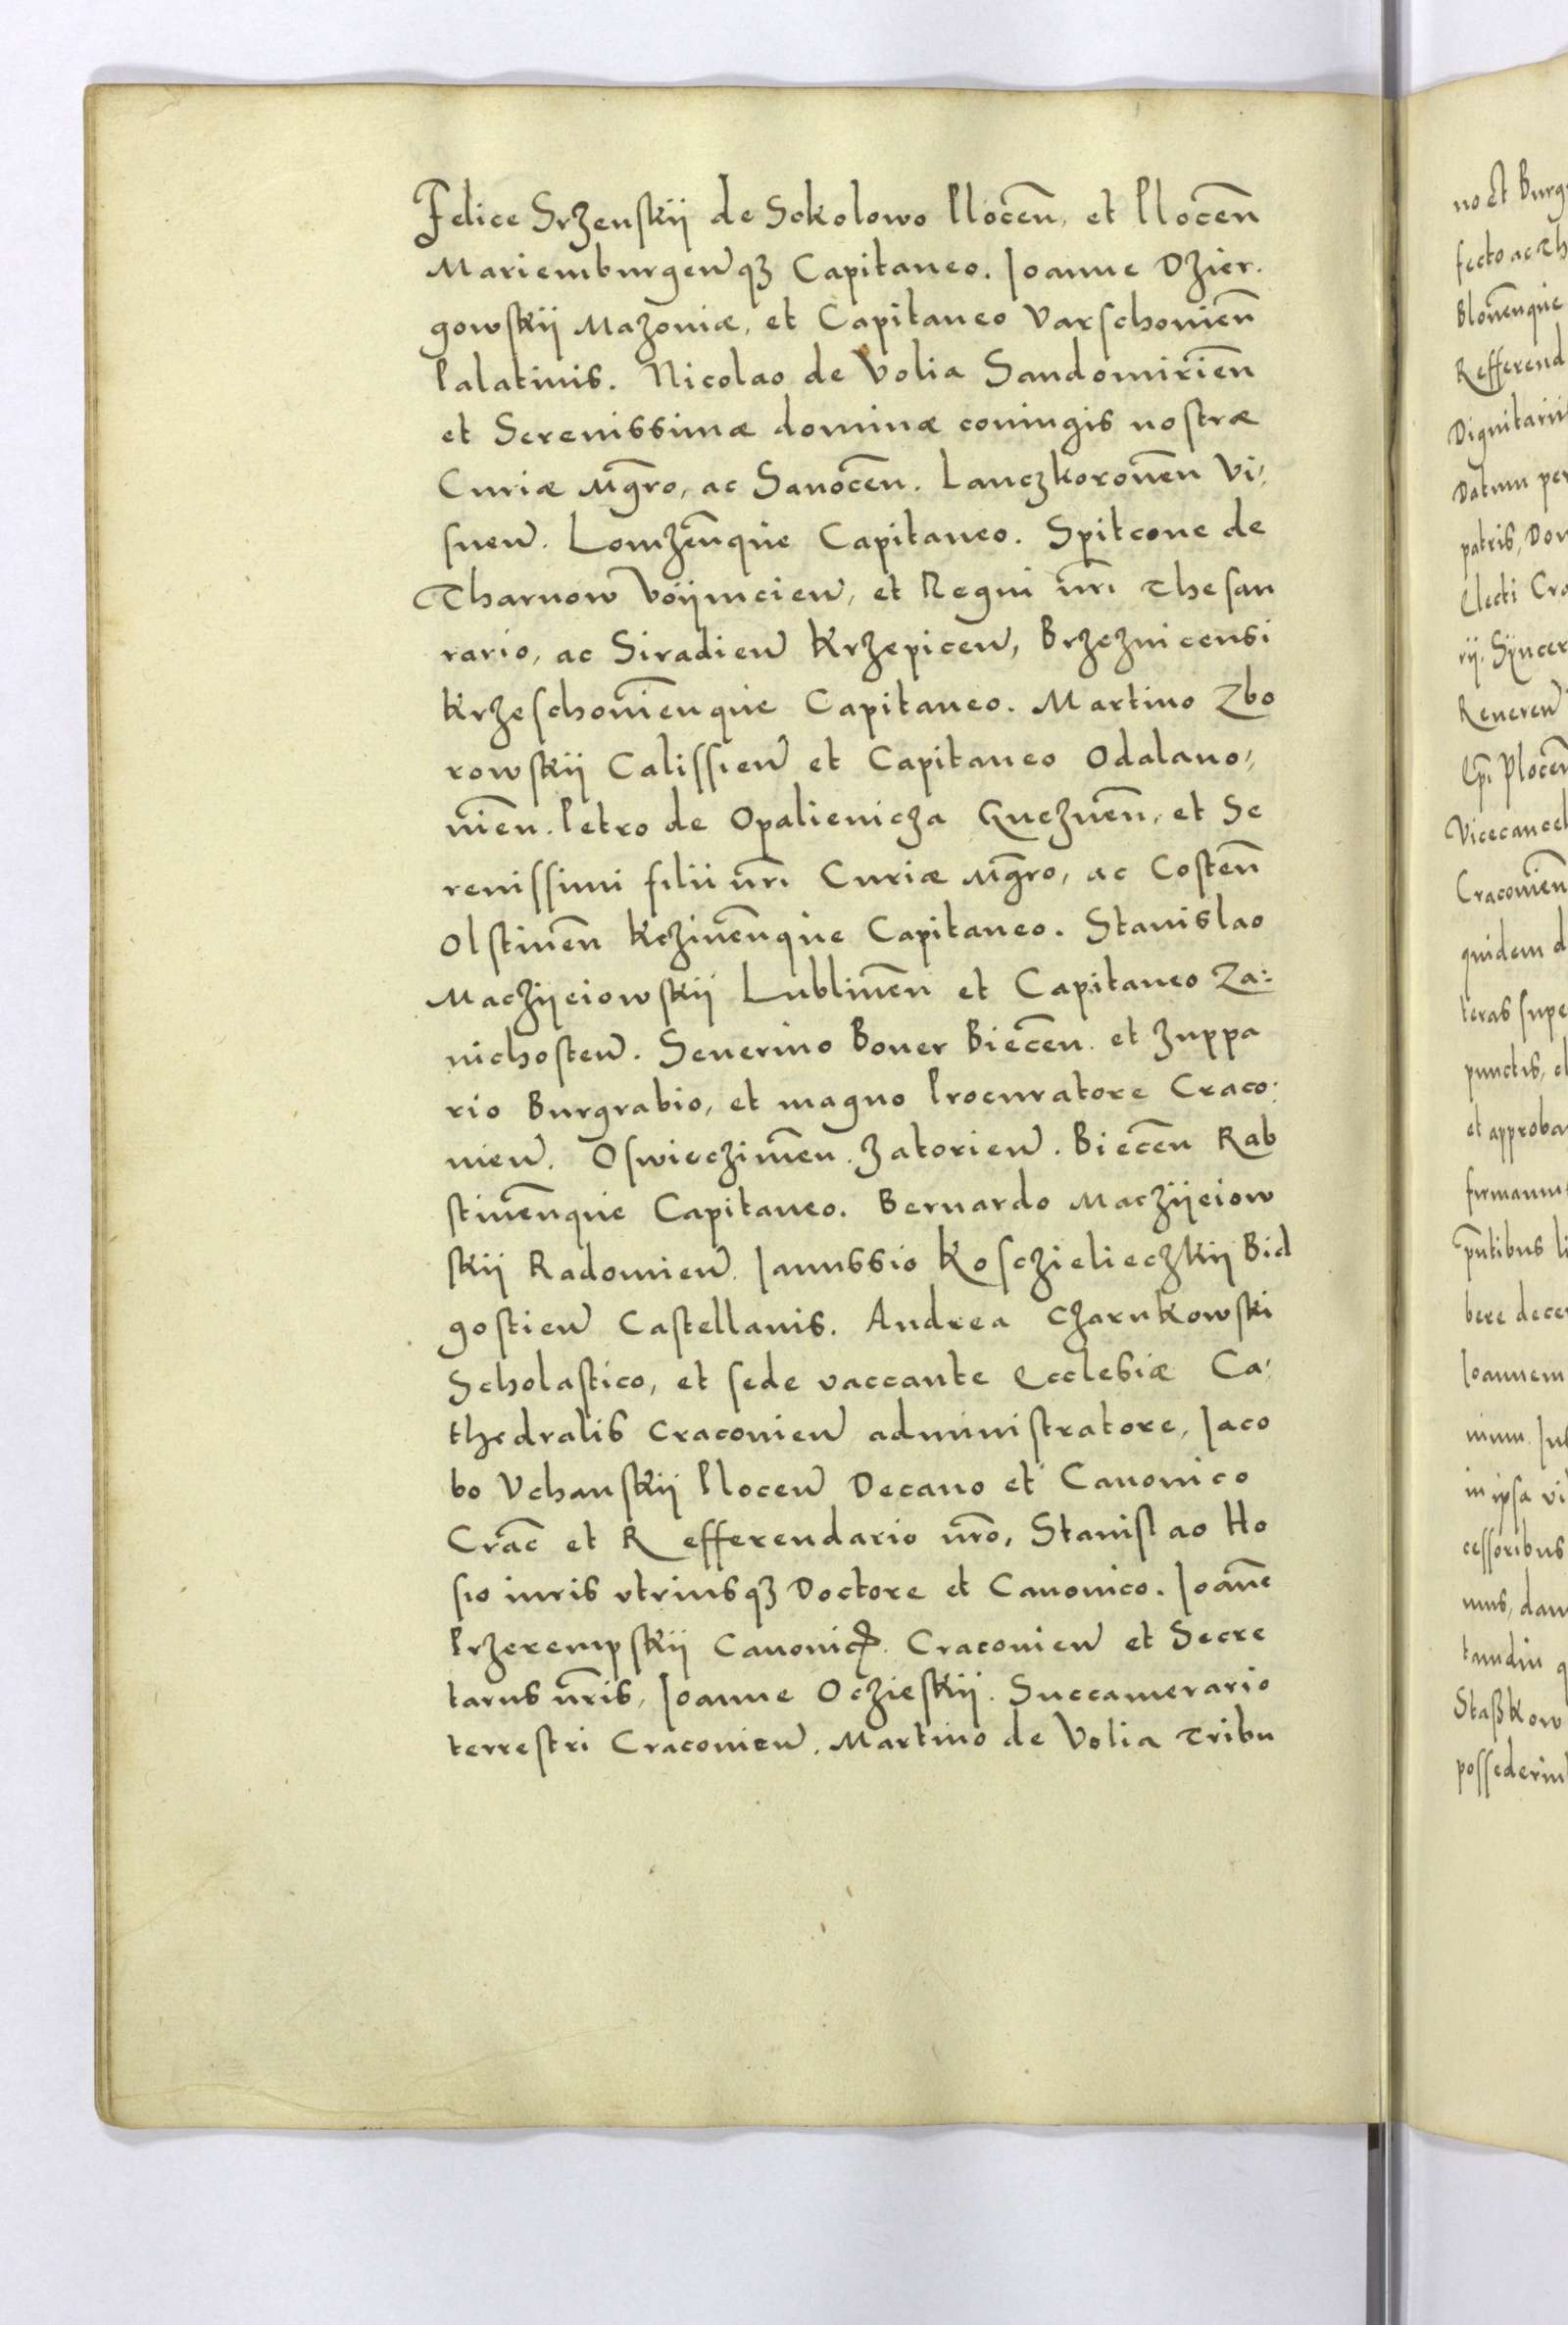 Felice Srzenskij de Sokolowo Plocen̄, et Plocen̄
Mariemburgen̄ qꝫ Capitaneo. Ioanne Dzier.
gowskij Mazoniæ, et Capitaneo Varschonien̄
Palatinis. Nicolao de Volia Sandomirien̄
et Serenissimæ dominæ coniugis nostræ
Curiæ Mgr̄o, ac Sanocen̄. Lanczkoronen̄ Vi,
snen̄. Lomzen̄que Capitaneo. Spitcone de
Tharnow Voijnicien̄, et Regni nr̄i Thesau
rario, ac Siradien̄ Krzepicen̄, Brzeznicensi
Krzeschonien̄que Capitaneo. Martino Zbo
rowskij Calissien̄ et Capitaneo Odalano,
nien̄. Petro de Opalienicza Gneznen̄, et Se
renissimi filii nr̄i Curiæ Mgr̄o, ac Costen̄
Olstinen̄ Kczinen̄que Capitaneo. Stanislao
Maczijeiowskij Lublinen̄ et Capitaneo Za:
nichosten̄. Seuerino Boner Biecen̄. et Zuppa
rio Burgrabio, et magno Procuratore Craco:
nien̄. Oswieczimen̄. Zatorien̄. Biecen̄ Rab
stinen̄que Capitaneo. Bernardo Maczijeiow
skij Radomien̄. Ianussio Kosczielieczkij Bid
gostien̄ Castellanis. Andrea Czarnkowski
Scholastico, et sede vaccante Ecclesiæ Ca,
thedralis Craconien̄ administratore, Iaco
bo Vchanskij Plocen̄ Decano et Canonico
Crac̄ et Refferendario nr̄o, Stanislao Ho
sio iuris vtriusqꝫ Doctore et Canonico. Ioan̄e
Przerempskij Canonicꝭ. Craconien̄ et Secre
tarus nr̄is, Ioanne Oczieskij. Succamerario
terrestri Craconien̄. Martino de Volia Tribu
no et Burg
fecto ac Th
Blonen̄que
Refferend
Dignitarii
Datum per
patris, Dom
Electi Cra
rij. Sÿncer
Reueren̄
Ep̄i Plocen̄
Vicecancel
Craconien̄
quidem d
teras supe
punctis, cl
et approba
firmamus
pn̄tibus li
bere dece
Ioannem
in ipsa vi
cessoribus
mus, dam
tamdiu q
Staßkow
possederint